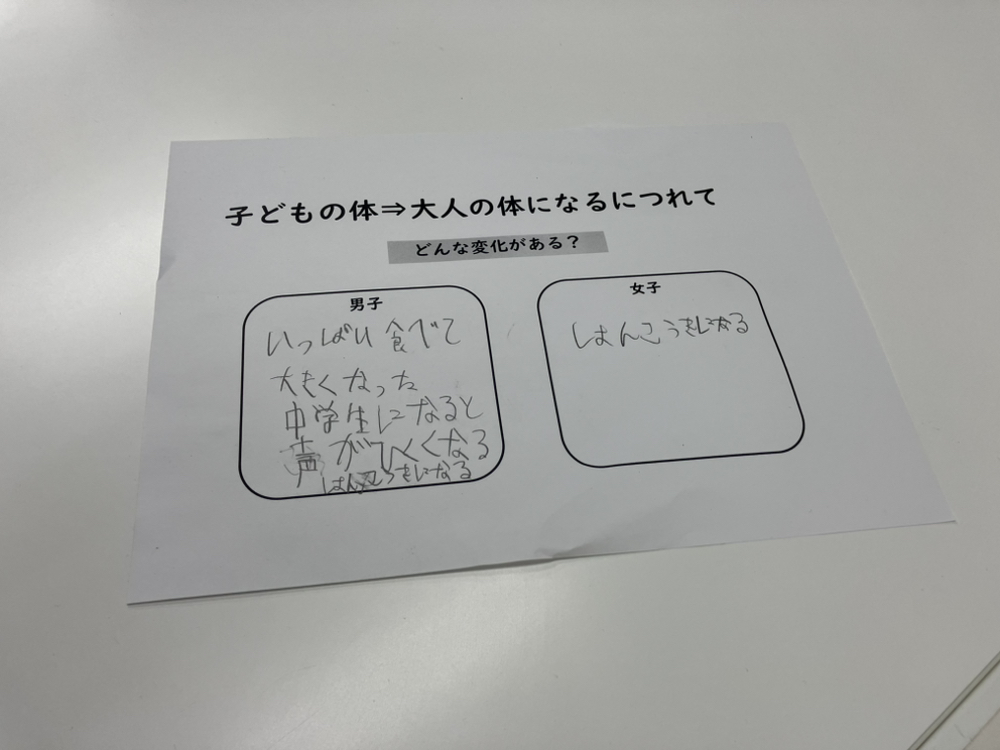 子どもの体⇒大人の体になるにつれて
どんな変化がある？
男子
いっぱい食べて
大きくなった
中学生になると
声がひくくなる
はんこうきになる
女子
はんこうきになる